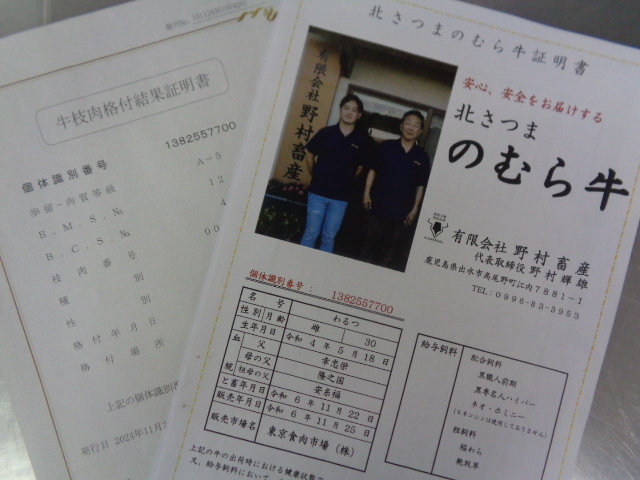 牛枝肉格付結果証明書
個体識別番号
1382557700
歩留・肉質等級
A-5
B.M.S.№
12
B.C.S.№
4
枝肉番号
種別
性別
格付年月日
格付場所
上記の個体識別
発行日 2024年11月
北さつまのむら牛証明書
有限会社野村畜産
安心、安全をお届けする
北さつま
のむら牛
有限会社 野村畜産
代表取締役 野村輝雄
鹿児島県出水市高尾野町江内7881-1
TEL:0996-83-3953
個体識別番号: 1382557700
名号 わるつ
性別 月齢 雌 30
生年月日 令和 4 年 5 月 18 日
血統
父 幸忠栄
母の父 隆之国
祖母の父 安糸福
と畜年月日 令和 6 年 11 月 22 日
販売年月日 令和 6 年 11 月 25 日
販売市場名 東京食肉市場(株)
給与飼料
配合飼料
黒職人前期
黒専名人ハイパー
ネオ・ホミニー
(モネンシンは使用しておりません)
粗飼料
稲わら
乾牧草
上記の牛の出荷時における健康状態
又、給与飼料において